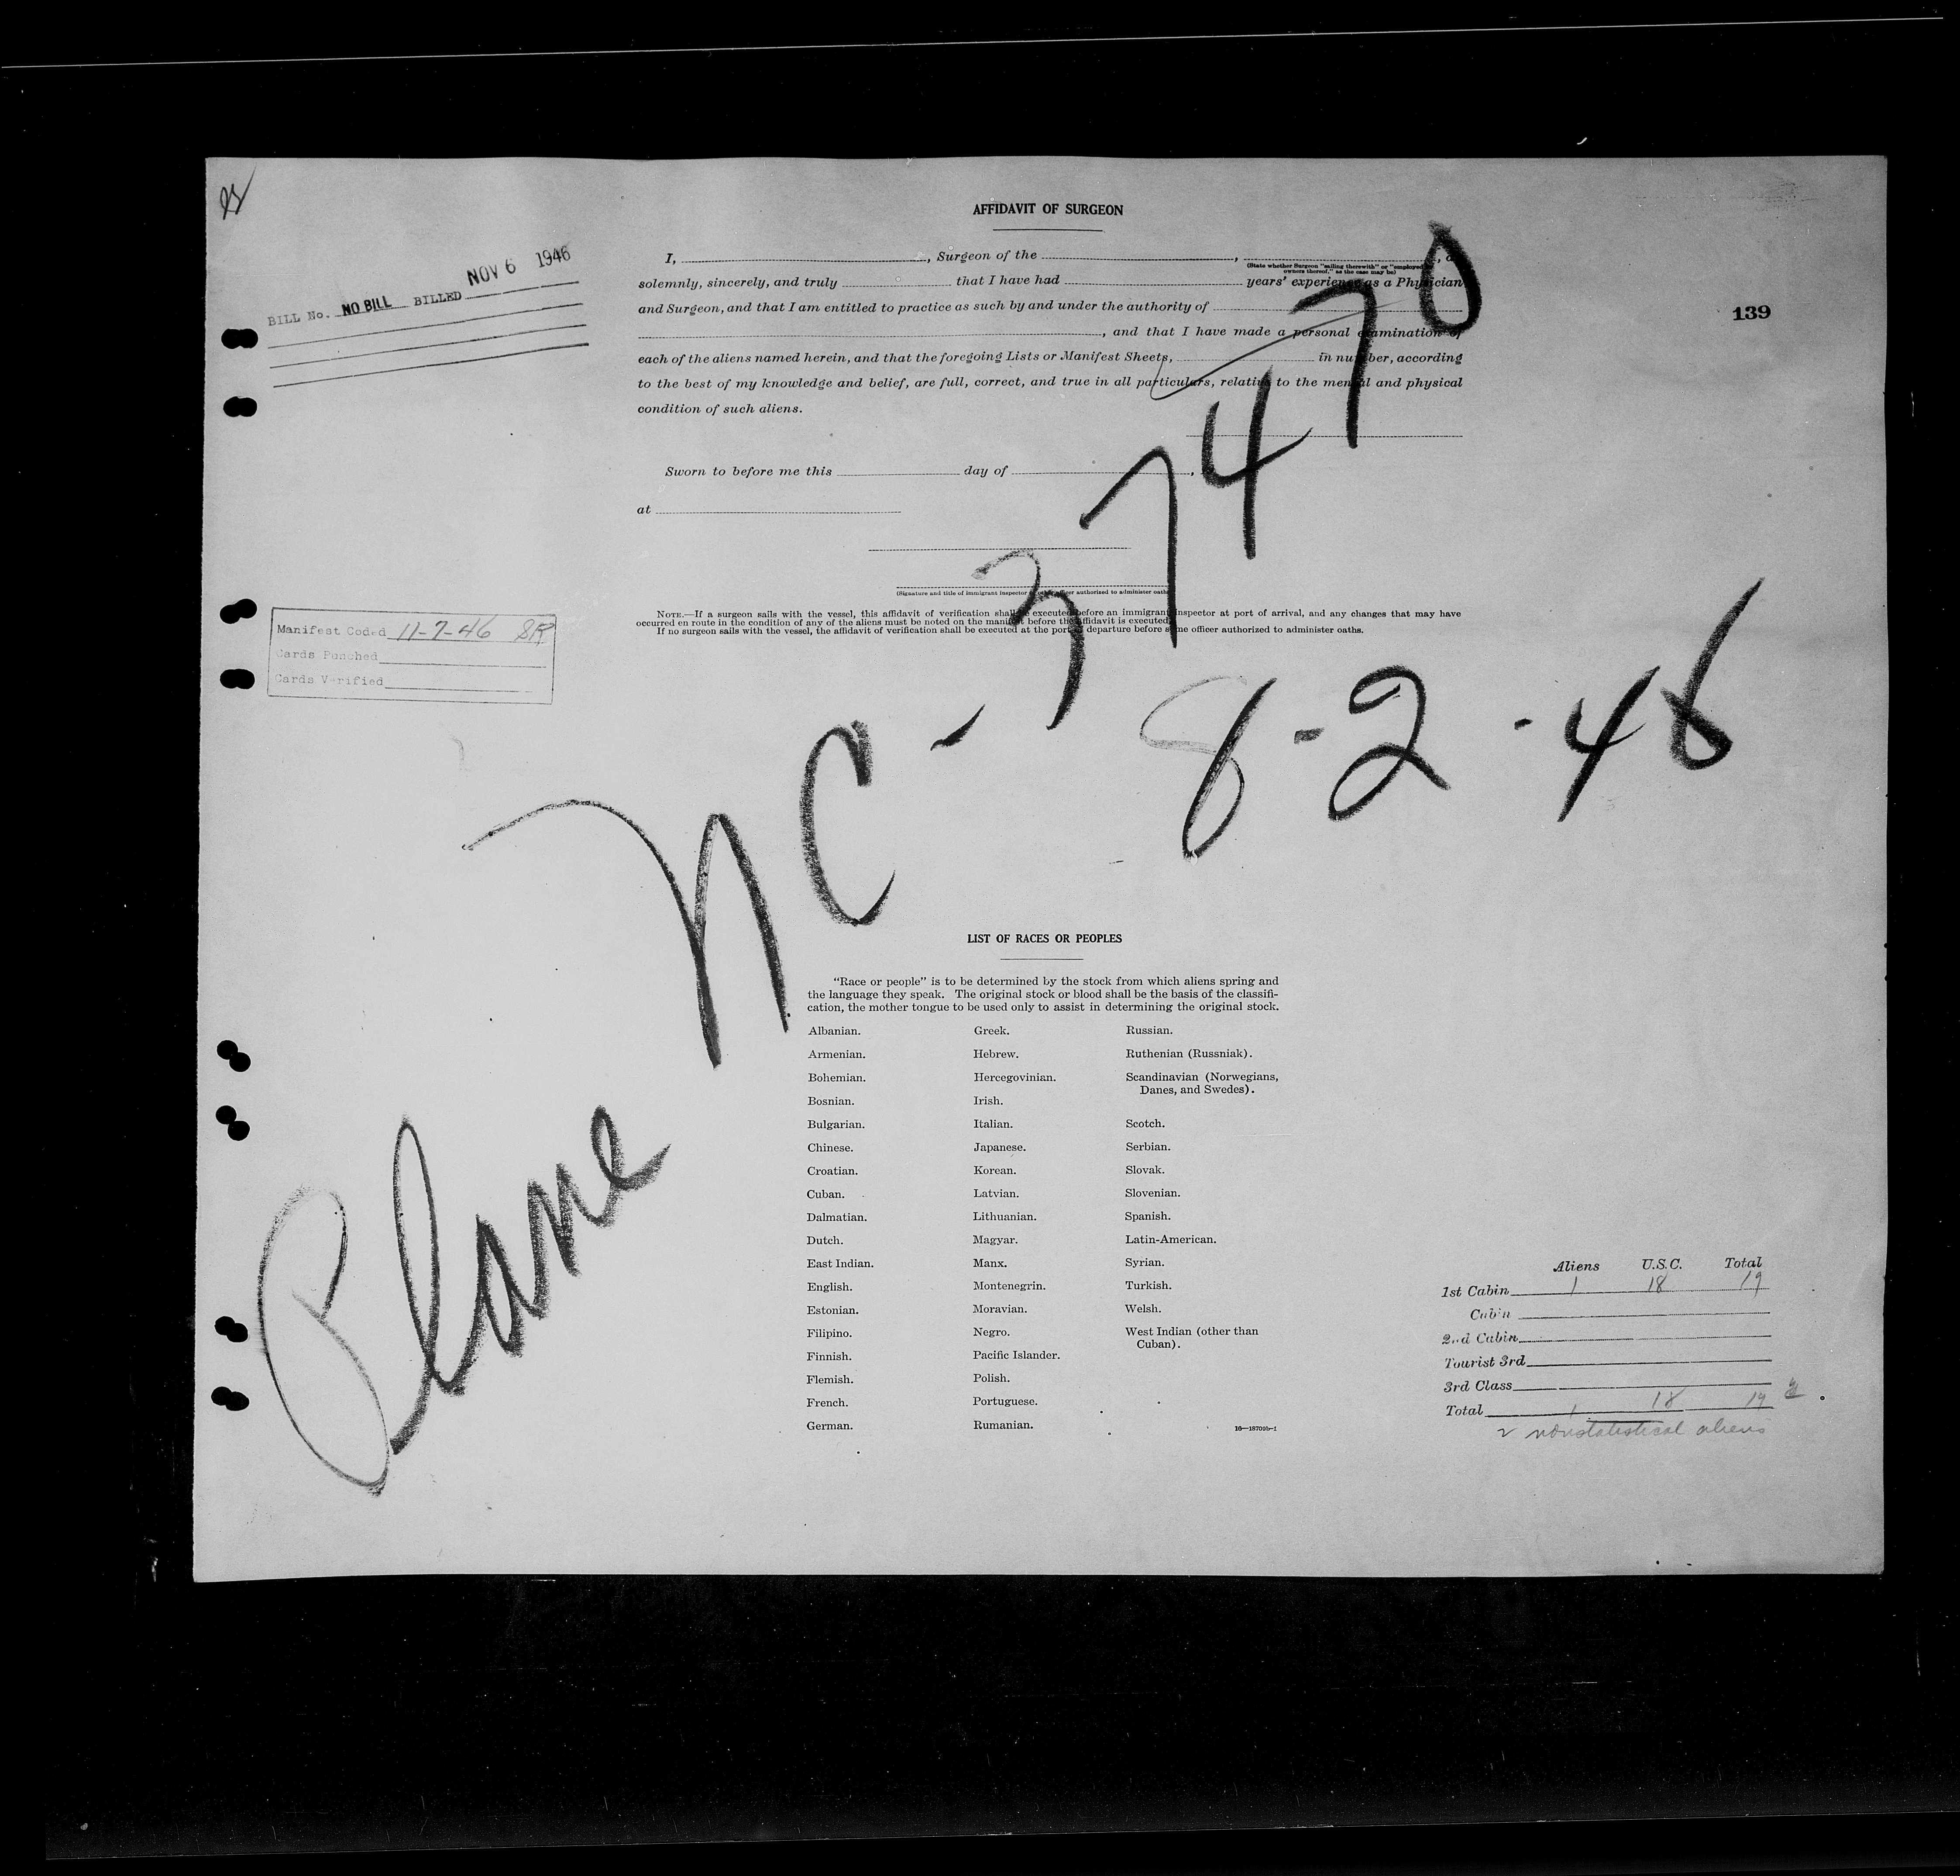 AFFIDAVIT OF SURGEON
I, , Surgeon of the , , do
(State whether Surgeon "sailing therewith" or "employed by owners thereof," as the case may be)
solemnly, sincerely, and truly that I have had years' experience as a Physician
and Surgeon, and that I am entitled to practice as such by and under the authority of
, and that I have made a personal examination of
each of the aliens named herein, and that the foregoing Lists or Manifest Sheets, in number, according
to the best of my knowledge and belief, are full, correct, and true in all particulars, relative to the mental and physical
condition of such aliens.
Sworn to before me this day of ,
at
(Signature and title of immigrant inspector or other officer authorized to administer oaths)
NOTE.—If a surgeon sails with the vessel, this affidavit of verification shall be executed before an immigrant inspector at port of arrival, and any changes that may have
occurred en route in the condition of any of the aliens must be noted on the manifest before the affidavit is executed.
If no surgeon sails with the vessel, the affidavit of verification shall be executed at the port of departure before some officer authorized to administer oaths.
NOV 6 1946
BILL No. NO BILL BILLED
139
Manifest Coded 11-7-46 SR
Cards Punched
Cards Verified
Plane NC-37470
8-2-46
LIST OF RACES OR PEOPLES
"Race or people" is to be determined by the stock from which aliens spring and
the language they speak. The original stock or blood shall be the basis of the classifi-
cation, the mother tongue to be used only to assist in determining the original stock.
Albanian.
Armenian.
Bohemian.
Bosnian.
Bulgarian.
Chinese.
Croatian.
Cuban.
Dalmatian.
Dutch.
East Indian.
English.
Estonian.
Filipino.
Finnish.
Flemish.
French.
German.
Greek.
Hebrew.
Hercegovinian.
Irish.
Italian.
Japanese.
Korean.
Latvian.
Lithuanian.
Magyar.
Manx.
Montenegrin.
Moravian.
Negro.
Pacific Islander.
Polish.
Portuguese.
Rumanian.
Russian.
Ruthenian (Russniak).
Scandinavian (Norwegians,
Danes, and Swedes).
Scotch.
Serbian.
Slovak.
Slovenian.
Spanish.
Latin-American.
Syrian.
Turkish.
Welsh.
West Indian (other than
Cuban).
Aliens U.S.C. Total
1st Cabin 1 18 19
Cabin
2nd Cabin
Tourist 3rd
3rd Class
Total 1 18 19
2 nonstatistical aliens